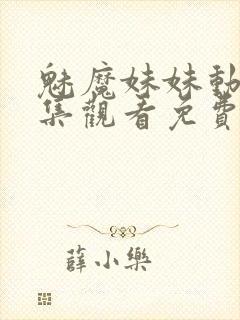 魅魔妹妹動
集觀看免費
薛小樂